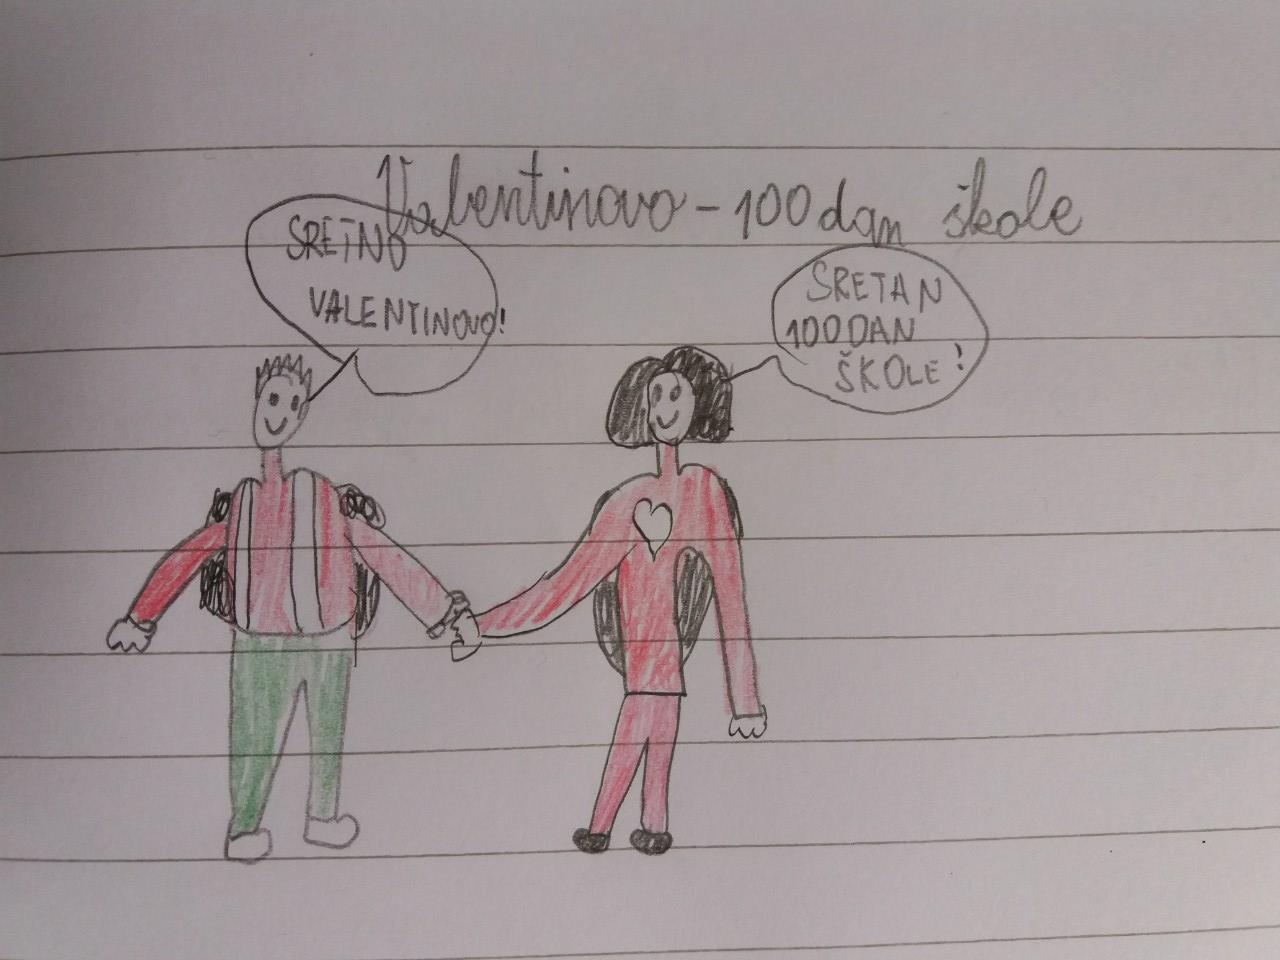 Valentinovo - 100 dan škole
SRETNO
VALENTINOVO!
SRETAN
100 DAN
ŠKOLE!